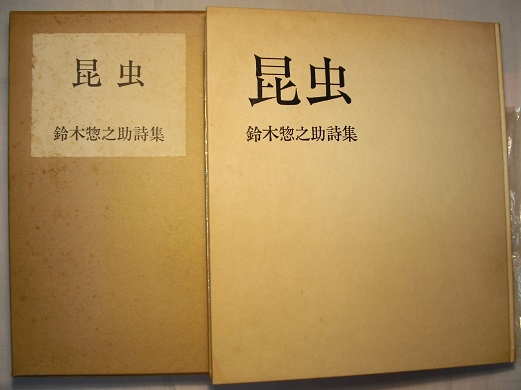 昆虫
鈴木惣之助詩集
昆虫
鈴木惣之助詩集